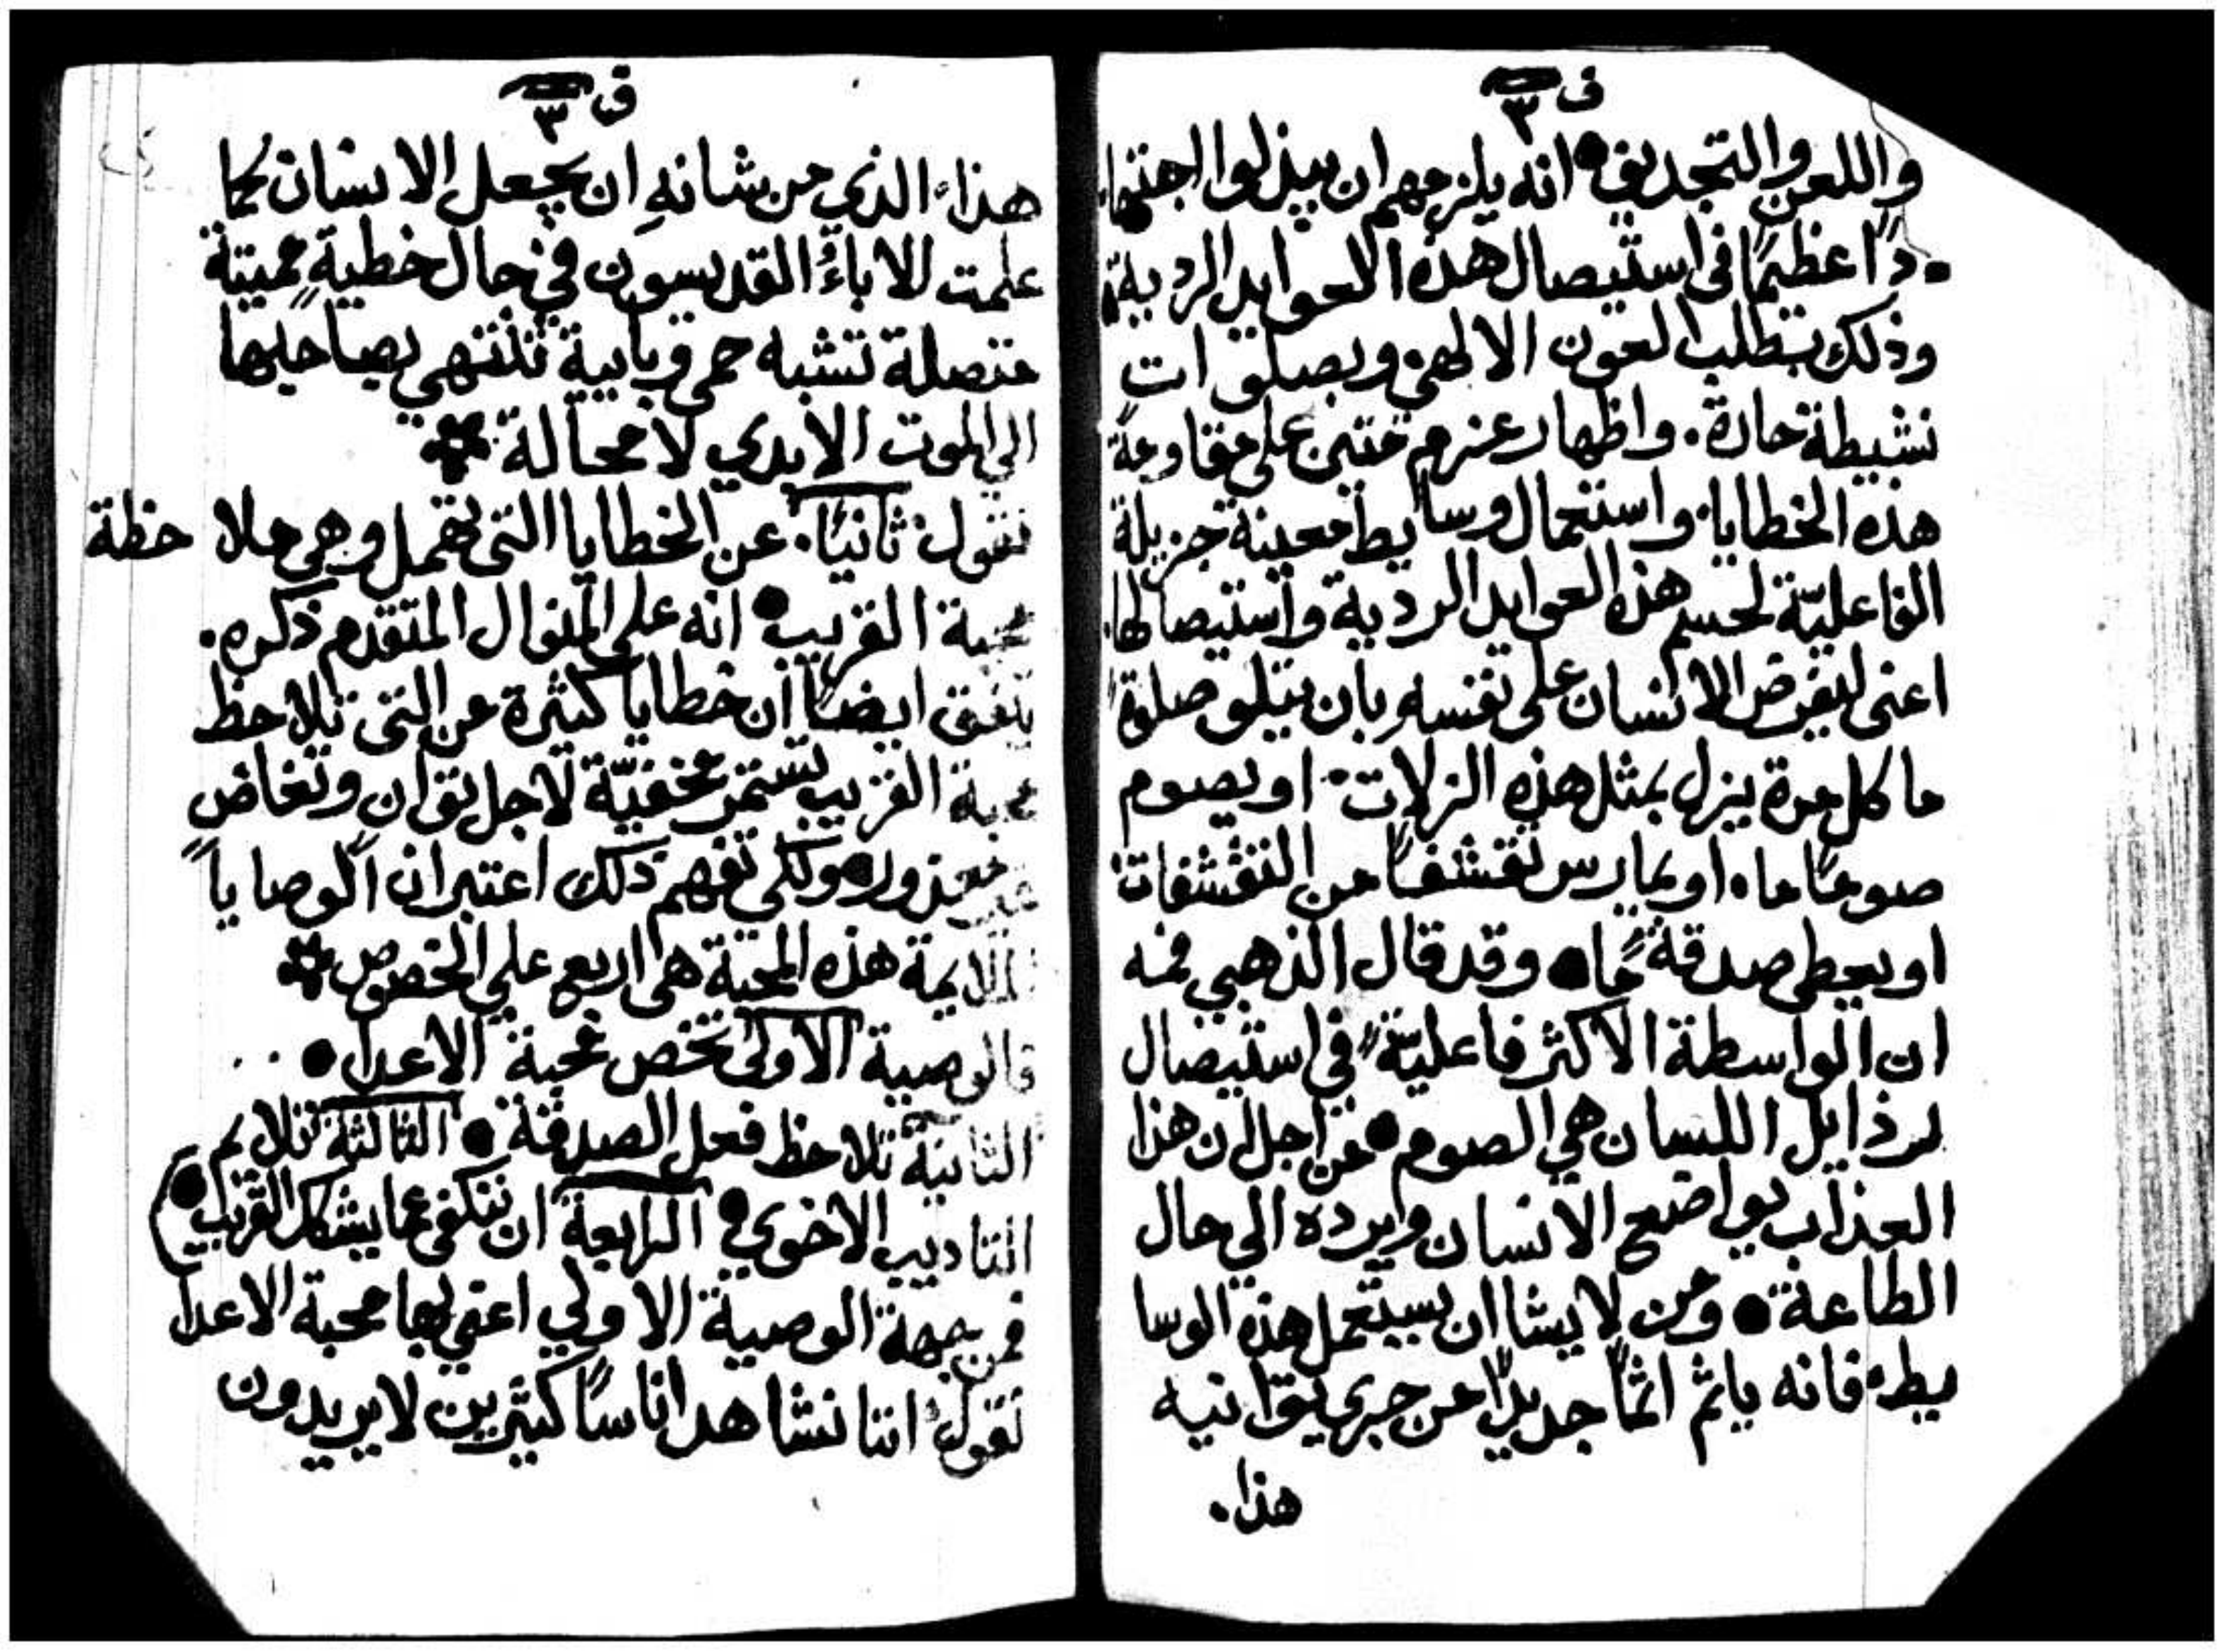 ق ٣
واللعن والتجديف • انه يلزمهم ان يبذلوا اجتها
دًا عظيمًا في استيصال هذه العوايد الردية
وذلك بطلب العون الالهي وبصلوات
نشيطة حارة. واظهار عزم متين على مقاومة
هذه الخطايا. واستعمال وسايط معينة جزيلة
الفاعليّة لحسم هذه العوايد الردية واستيصالها.
اعنى ليفرض الانسان على نفسه بان يتلو صلوة
ما كل مرة يزل بمثل هذه الزلات. او يصوم
صومًا ما. او يمارس تقشفًا من التقشفات
او يعطى صدقة ما • وقد قال الذهبي فمه
ان الواسطة الاكثر فاعليّة في استيصال
رذايل اللسان هي الصوم • من اجل ان هذا
العذاب يواضع الانسان ويرده الي حال
الطاعة • ومن لا يشا ان يستعمل هذه الوسا
يط. فانه ياثم اثمًا جديدًا من جرى توانيه
هذا.
ق ٣
هذا. الذي من شانه ان يجعل الانسان كما
علمت الاباء القديسون في حال خطية مميتة
متصلة تشبه حمى وبايية تنتهي بصاحبها
الي الموت الابدي لا محالة
نقول ثانيًا. عن الخطايا التي تهمل وهي ملاحظة
محبة القريب • انه على المنوال المتقدم ذكره.
يتفق ايضًا ان خطايا كثيرة من التي تلاحظ
محبة القريب تستمر مخفيّة لاجل توان وتغاض
غير معذور • ولكي تفهم ذلك اعتبر ان الوصايا
الملايمة هذه المحبة هي اربع على الخصوص
فالوصية الاولى تخص محبة الاعدا •
الثانية تلاحظ فعل الصدقة • الثالثة تلايم
التاديب الاخوي • الرابعة ان ننكفى عما يشكك القريب •
فمن جهة الوصية الاولي اعني بها محبة الاعدا
نقول اننا نشاهد اناسًا كثيرين لا يريدون